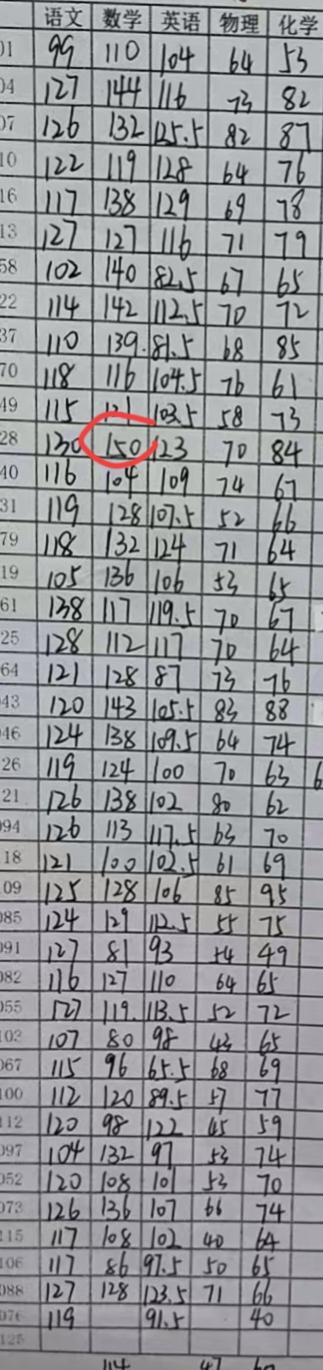 语文 数学 英语 物理 化学
01 99 110 104 64 53
04 127 144 116 73 82
07 126 132 125.5 82 87
10 122 119 128 64 76
16 117 138 129 69 78
13 127 127 116 71 79
58 102 140 82.5 67 65
22 114 142 112.5 70 72
37 110 139. 81.5 68 85
70 118 116 104.5 76 61
49 115 121 103.5 58 73
28 130 150 123 70 84
40 116 104 109 74 67
31 119 128 107.5 52 66
79 118 132 124 71 64
19 105 136 106 53 65
61 138 117 119.5 70 67
25 128 112 117 70 64
64 121 128 87 73 76
043 120 143 105.5 83 88
046 124 138 109.5 64 74
026 119 124 100 70 63 6
121 126 138 102 80 62
094 126 113 117.5 63 70
118 121 100 102.5 61 69
109 125 128 106 85 95
085 124 129 112.5 55 75
091 127 81 93 54 49
082 116 127 110 64 65
055 127 119. 113.5 52 72
103 107 80 98 43 65
067 115 96 65.5 68 69
100 112 120 89.5 57 77
112 120 98 122 45 59
097 104 132 97 53 74
052 120 108 101 53 70
073 126 136 107 66 74
115 117 108 102 40 64
106 117 86 97.5 50 65
088 127 128 123.5 71 66
076 119 91.5 40
125
114 47